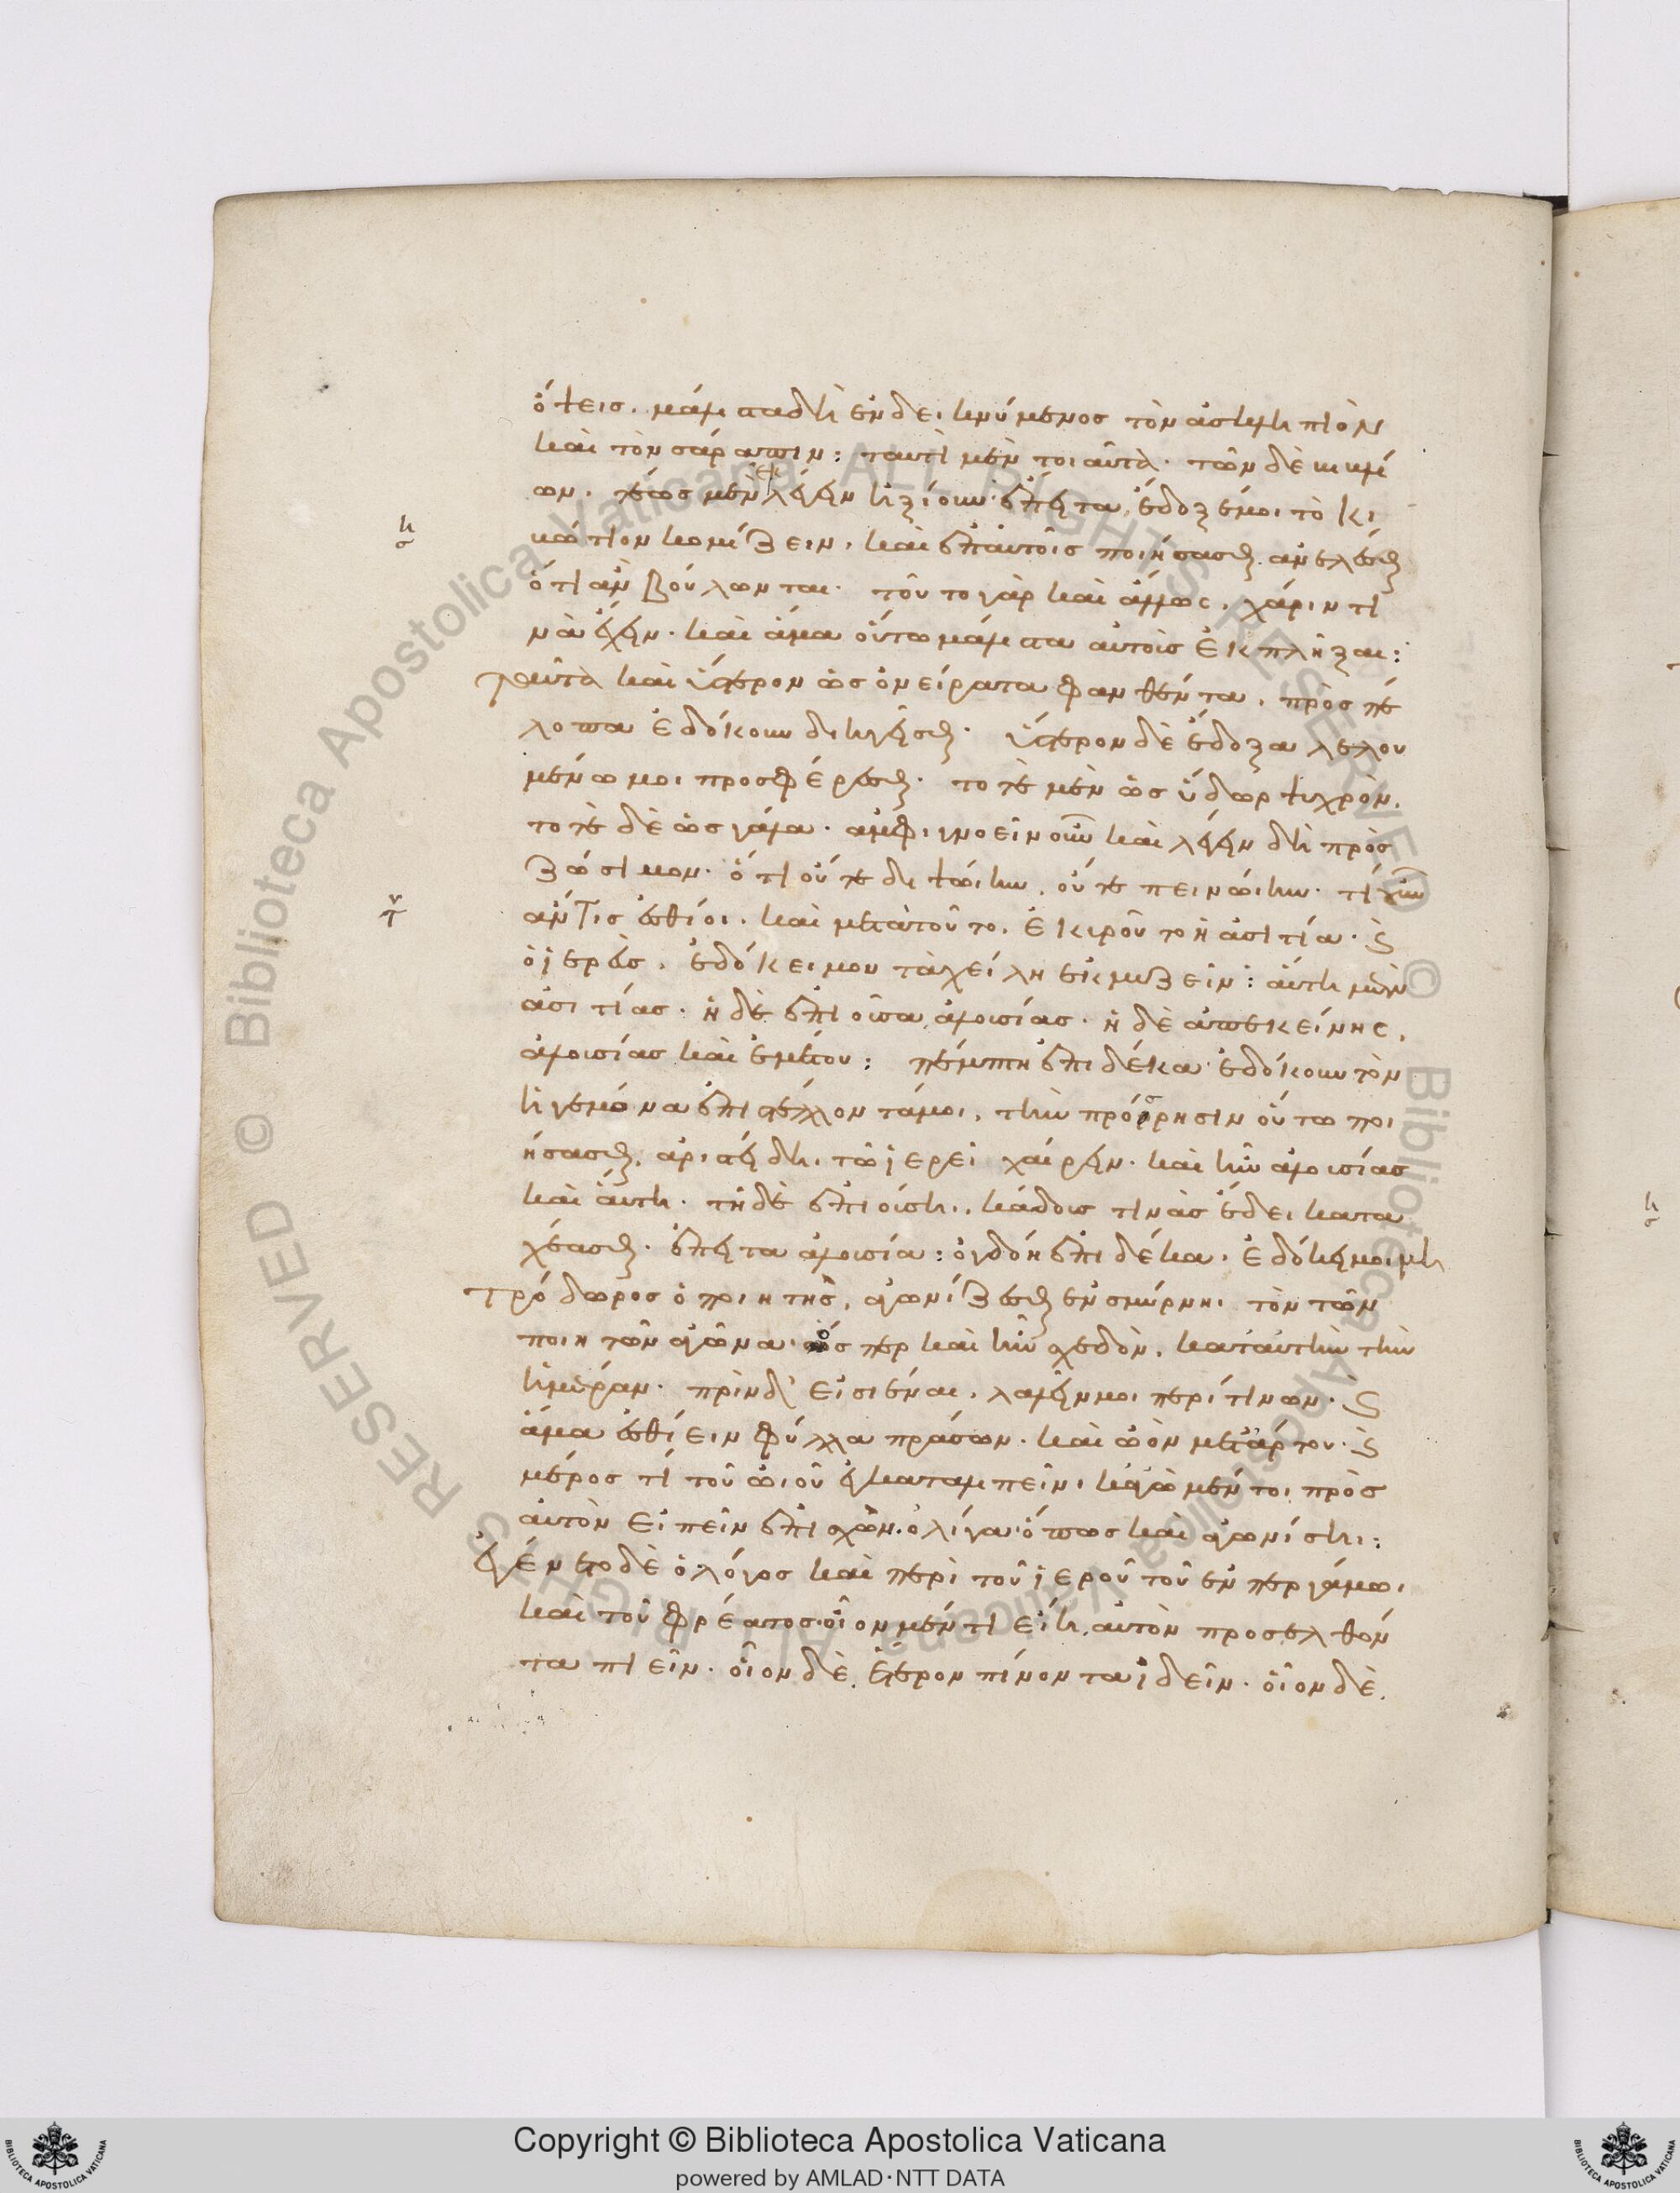 ὄψεις. μάλιστα δὴ ἐνδεικνύμενος τὸν ἀσκληπιὸν
καὶ τὸν σάραπιν: ταυτὶ μὲν τοιαῦτα. τῶν δὲ
τέως μὲν λέγειν ἠξίουν. ἔπειτα ἔδοξέ μοι τὸ κι
βώτιον κομίζειν. καὶ ἐπ' αὐτοῖς ποιήσασθαι ἀνελέσθαι
ὅτι ἂν βούλωνται. τοῦτο γὰρ καὶ ἄλλως. χάριν τι
νὰ ἔχειν. καὶ ἅμα οὕτω μάλιστα αὐτοὺς ἐκπλῆξαι:
ταῦτα καὶ ὕστερον ὡς ὀνείρατα φανθέντα. πρὸς πέ
λοπα ἐδόκουν διηγεῖσθαι. ὕστερον δὲ ἔδοξα λελου
μένω μοι προσφέρεσθαι. τοτὲ μὲν ὡς ὕδωρ ψυχρὸν.
τοτὲ δὲ ὡς γάλα. ἀμφιγνοεῖν οὖν καὶ λέγειν δὴ πρὸς
ζώσιμον. ὅτι οὔτε διψώιην. οὔτε πεινώιην. τί οὖν
ἄν τις ἐσθίοι. καὶ μετὰ τοῦτο. ἐκιρνοῦτο ἡ ἀσιτία. καὶ
ὁ ἱερεὺς. ἐδόκει μου τὰ χείλη ἐκμυζεῖν: αὕτη μὲν
ἀσιτίας. ἡ δὲ ἐπιοῦσα ἀλουσίας. ἡ δὲ ἀπ' ἐκείνης.
ἀλουσίας καὶ ἐμέτου: πέμπτη ἐπὶ δέκα ἐδόκουν τὸν
ἡγεμόνα ἐπιστέλλοντά μοι. τὴν πρόσρησιν οὕτω ποι
ήσασθαι. ἀριστείδη. τῶ ἱερεῖ χαίρειν. καὶ ἦν ἀλουσίας
καὶ αὕτη. τῆ δὲ ἐπιούση. κάδους τινὰς ἔδει κατα
χέασθαι. ἔπειτα ἀλουσία: ὀγδόη ἐπὶ δέκα. ἐδόκει μοι μη
τρόδωρος ὁ ποιητὴς. ἀγωνίζεσθαι ἐν σμύρνηι τὸν τῶν
ποιητῶν ἀγῶνα. ὅσπερ καὶ ἦν σχεδὸν. κατ' αὐτὴν τὴν
ἡμέραν. πρὶν δ' εἰσιέναι. λαλεῖν μοι περί τινων. καὶ
ἅμα ἐσθίειν φύλλα πράσων. καὶ ὠὸν μετ' ἄρτου. καὶ
μέρος τί τοῦ ὠιοῦ ἐγκαταλιπεῖν. κἀγὼ μέντοι πρὸς
αὐτὸν εἰπεῖν ἐπισχὼν. ὀλίγα. ὅπως καὶ ἀγωνίσηι:
ἐγένετο δὲ ὁ λόγος καὶ περὶ τοῦ ἱεροῦ τοῦ ἐν περγάμωι
καὶ τοῦ φρέατος. οἷον μέν τι εἴη. αὐτὸν προσελθόν
τα πιεῖν. οἷον δὲ. ἕτερον πίνοντα ἰδεῖν. οἷον δὲ.
Copyright © Biblioteca Apostolica Vaticana
powered by AMLAD·NTT DATA